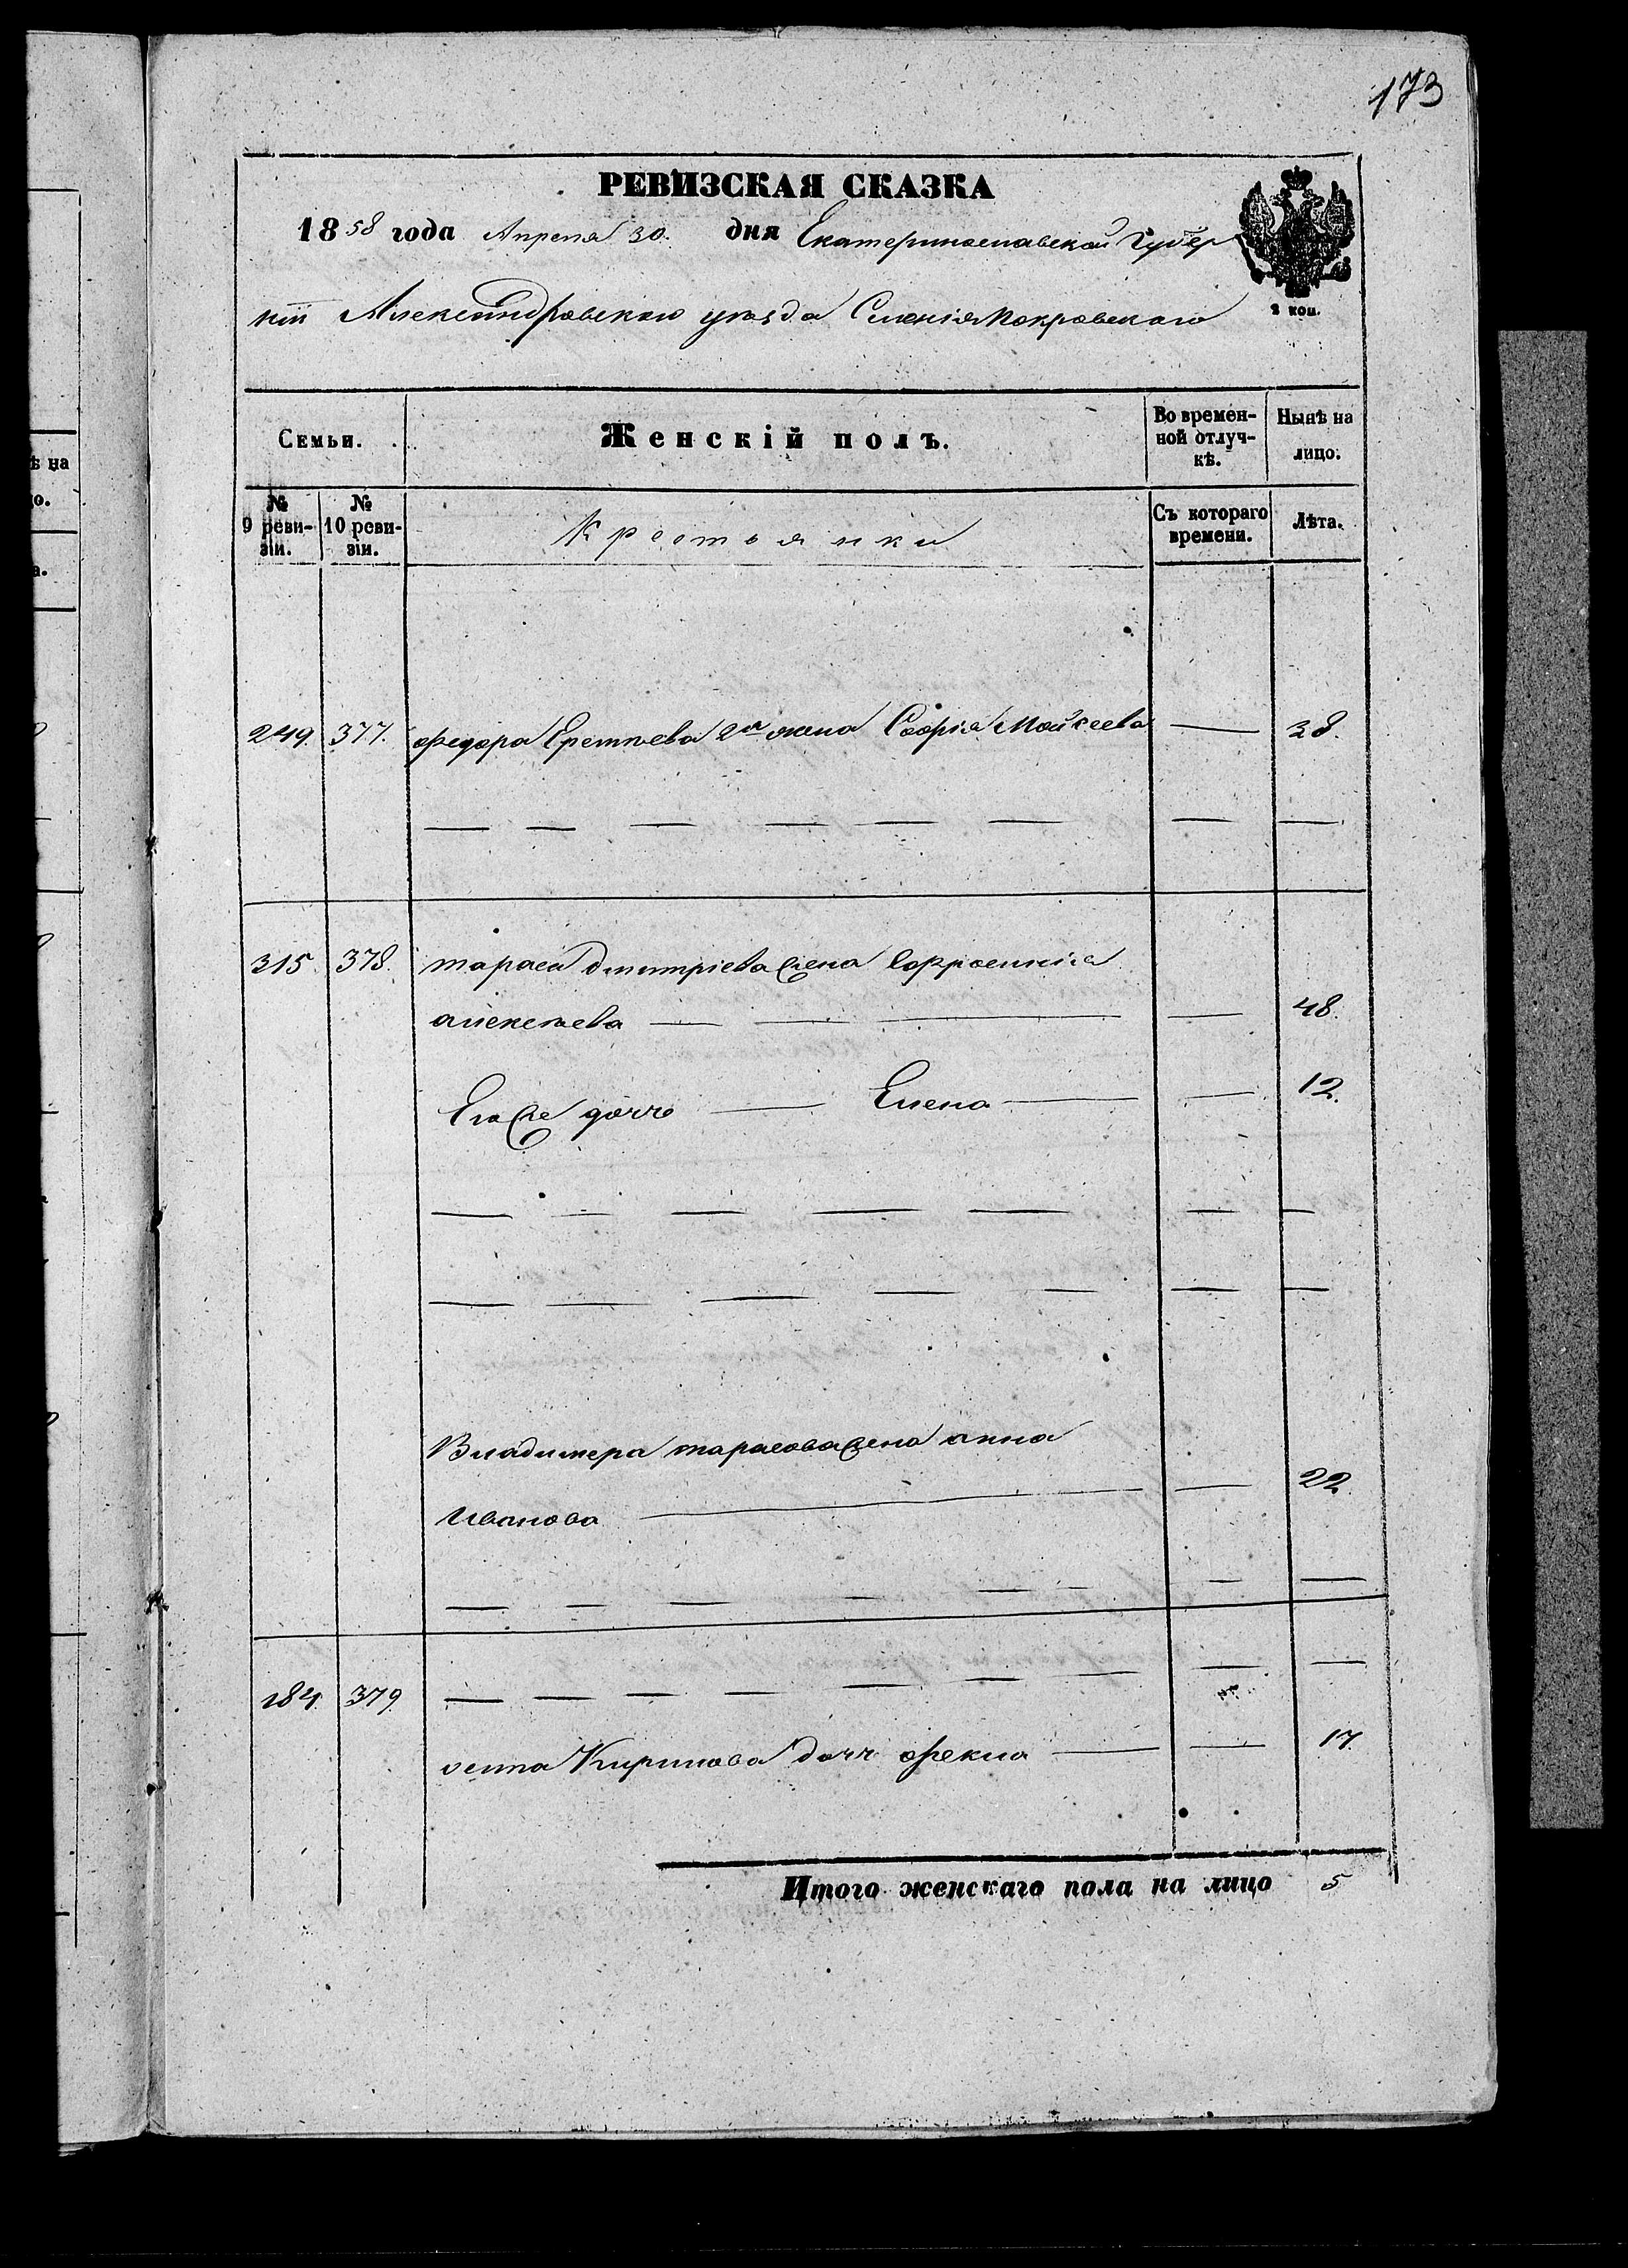 173
РЕВИЗСКАЯ СКАЗКА
1858 года Апреля 30. дня Екатеринославской Губер
ніи Александровскаго уѣзда Селенія Покровскаго
2 коп.
Семьи. Женскій полъ. Во времен-ной отлуч-кѣ. Нынѣ на лицо.
№ 9 реви-зіи. № 10 реви-зіи. Крестьянки Съ котораго времени. Лѣта.
249. 377. федора Еретьева 2я жена Софія Мойсеева — 38.
315. 378. тараса дмитріева жена
алексѣева — 48.
Его же дочь — Елена — 12.
Владимера тарасова жена анна
Иванова — 22.
184. 379
Кирилова дочь фекла — 17.
Итого женскаго пола на лицо 5
ѣ на
о.
а.